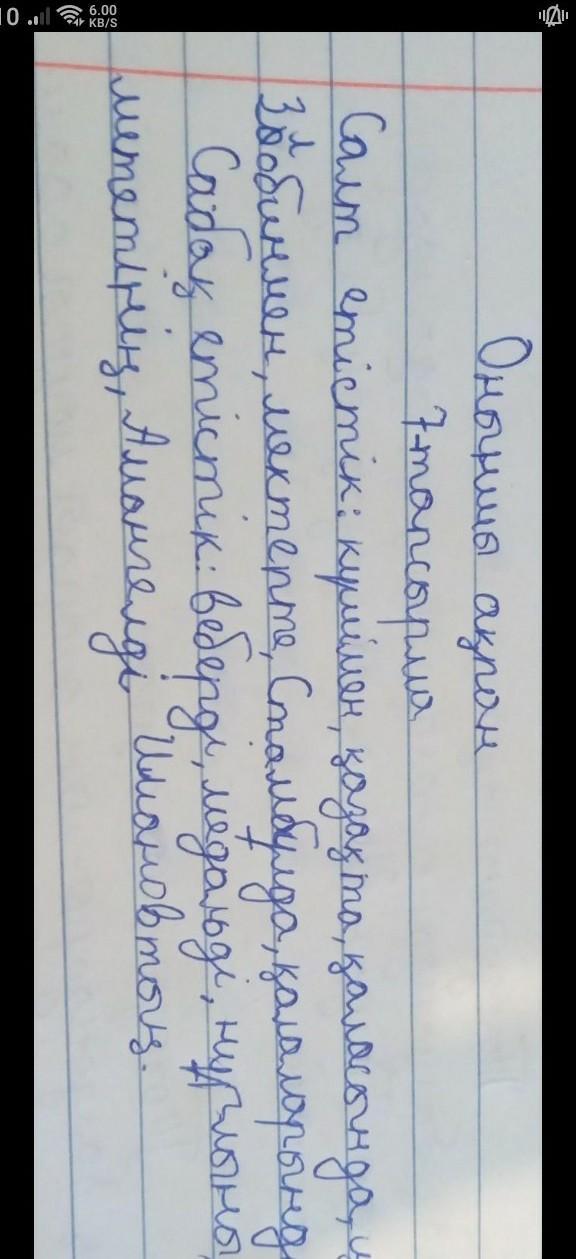 10
6.00
KB/S
Оныншы ақпан
7-тапсырма
Салт етістік: күшімен, қазақта, қаласында,
Зәлбинмен, мектепте, Стамбұлда, қаламарынд
Сабақ етістік: веберді, медальді, нұрлыны,
мететінің, Амангелді Имановтың.